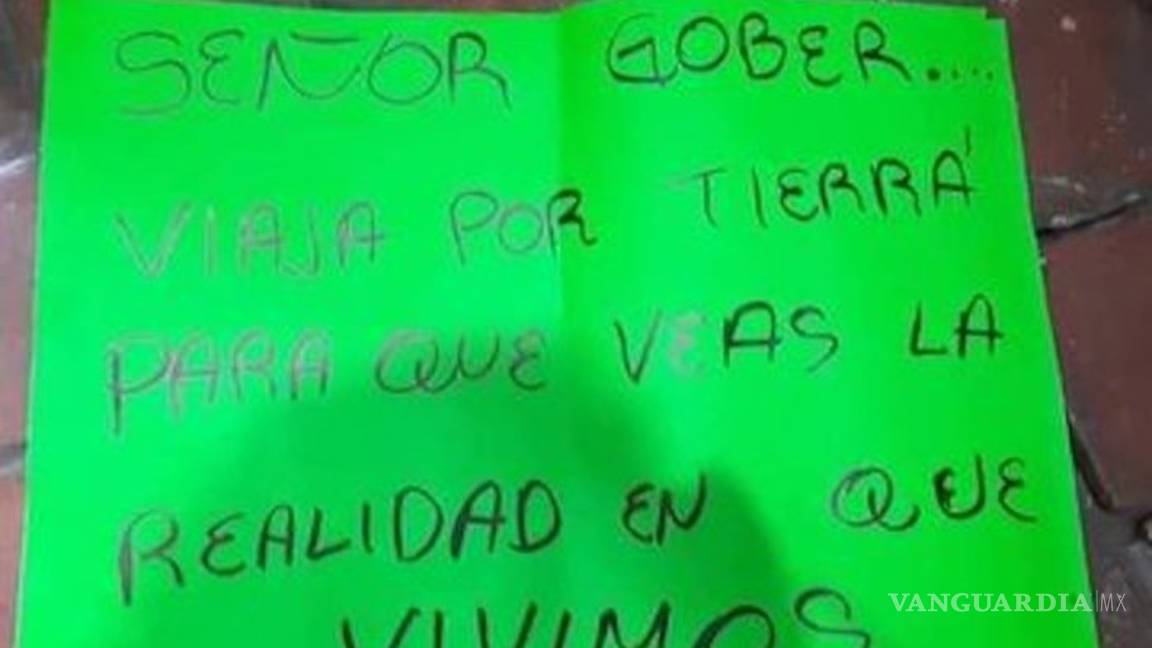 SEÑOR GOBER....
VIAJA POR TIERRA
PARA QUE VEAS LA
REALIDAD EN QUE
VIVIMOS
VANGUARDIA|MX